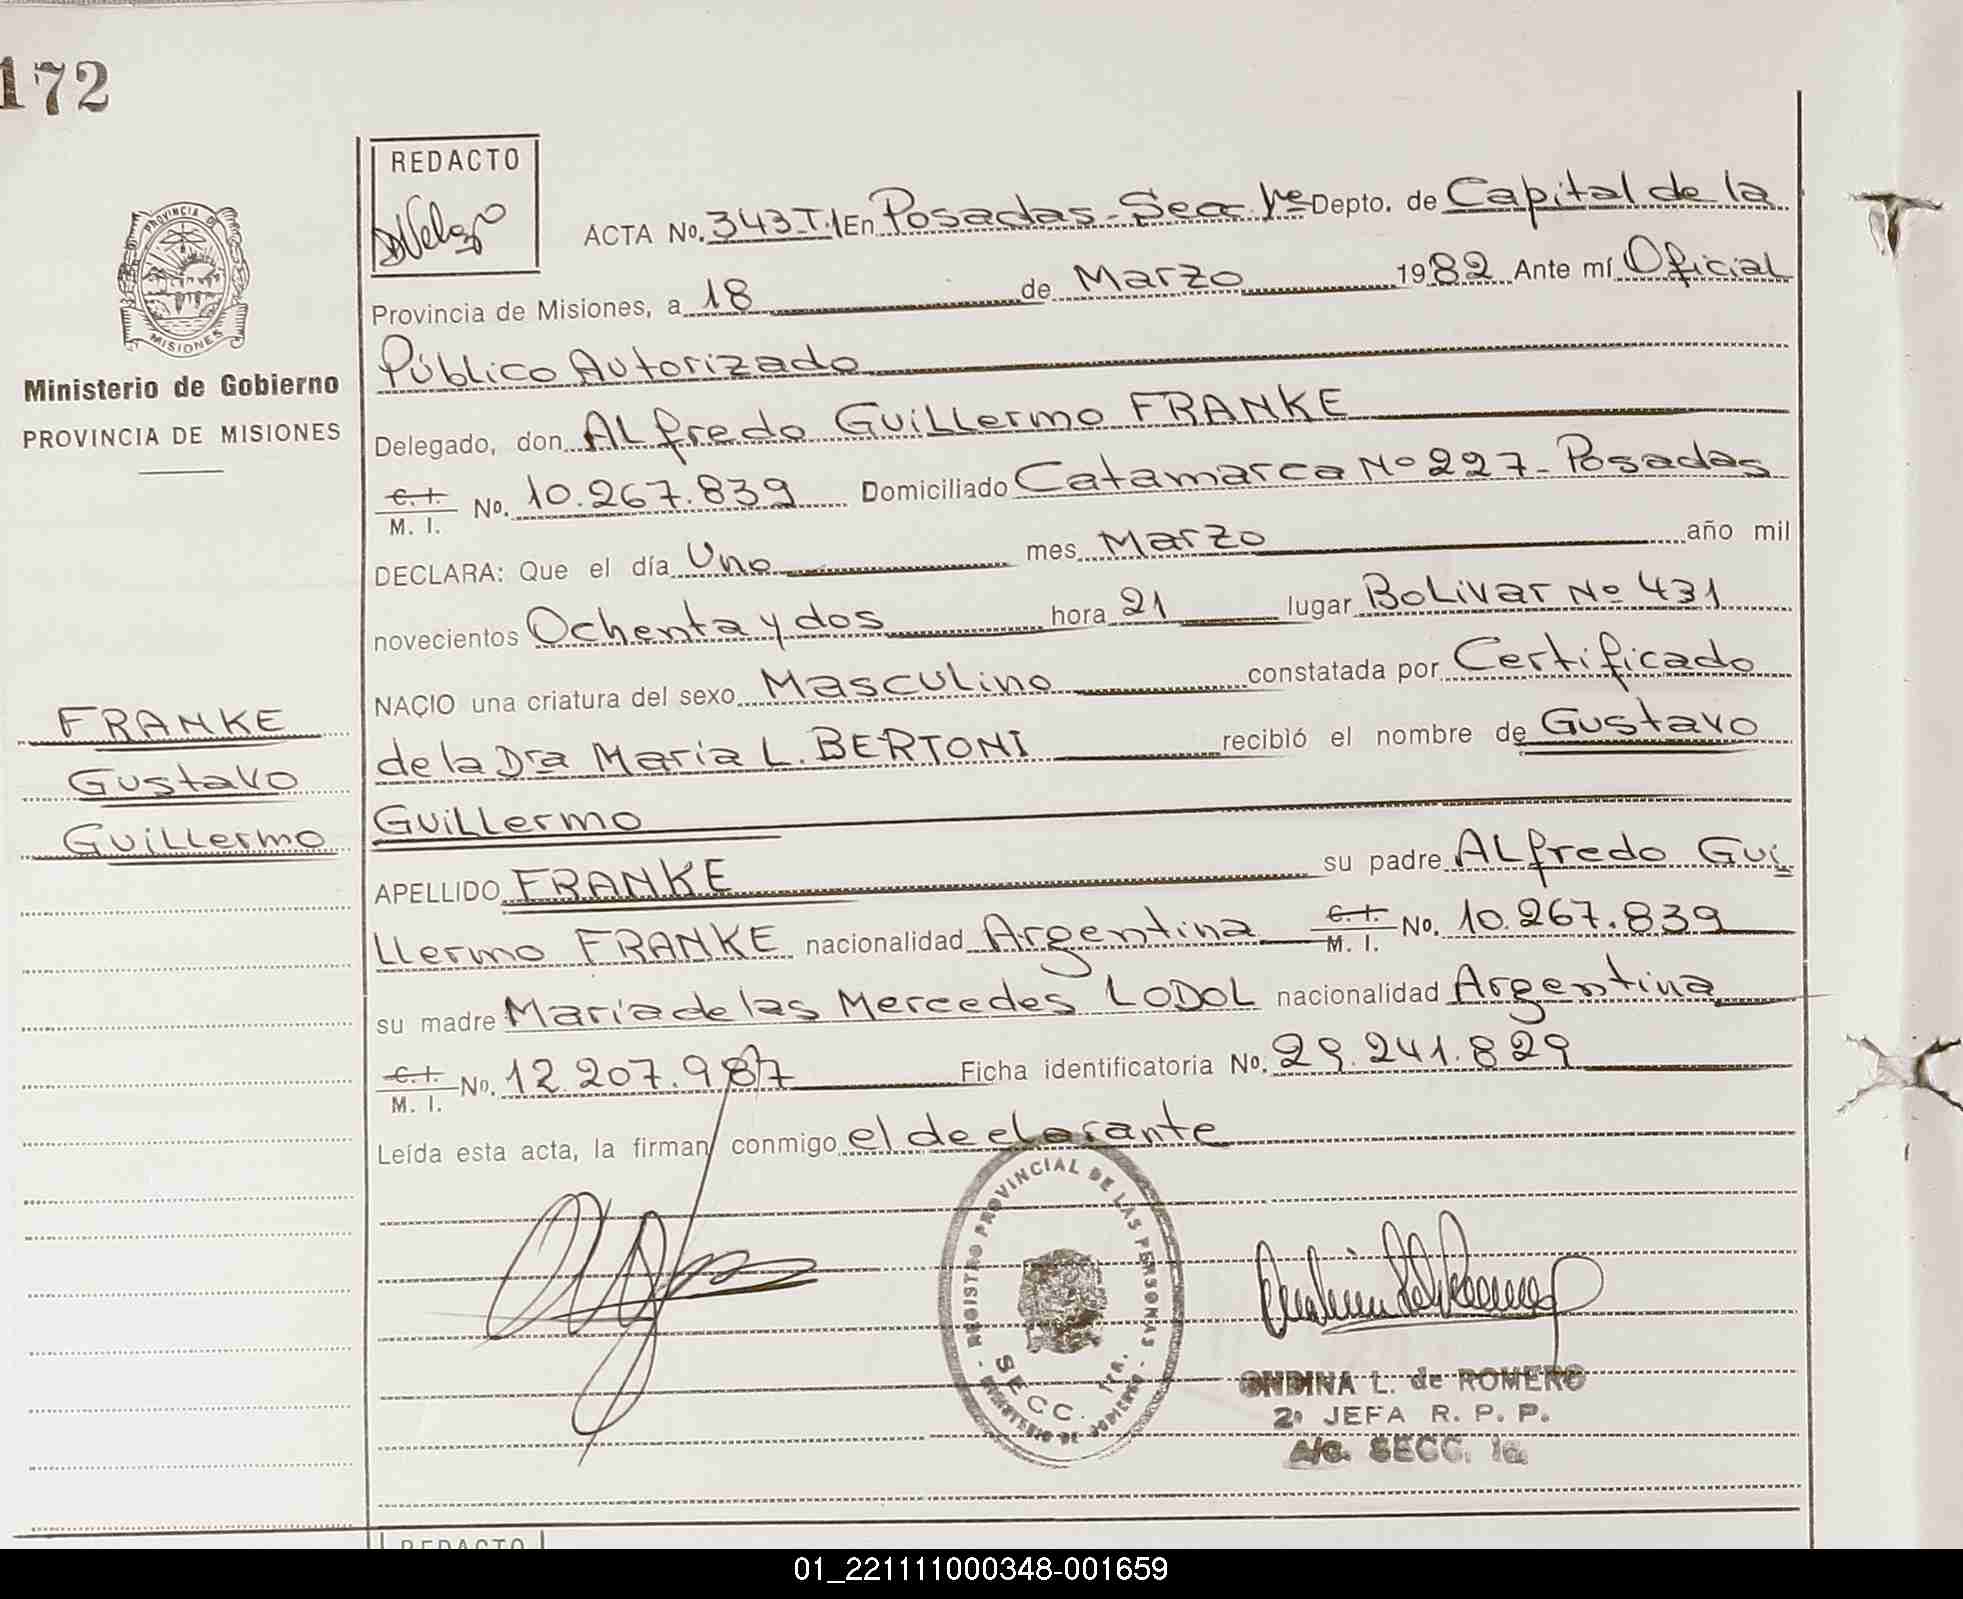 172
REDACTO
ACTA No. 343-T.I En Posadas - Secc. 1re Depto. de Capital de la
Provincia de Misiones, a 18 de Marzo 1982 Ante mí Oficial
Público Autorizado
Delegado, don Alfredo Guillermo FRANKE
C. I. M. I. No. 10.267.839 Domiciliado Catamarca Nº 227 - Posadas
DECLARA: Que el día Uno mes Marzo año mil
novecientos Ochenta y dos hora 21 lugar Bolivar Nº 431
NACIO una criatura del sexo Masculino constatada por Certificado
de la Dra María L. BERTONI recibió el nombre de Gustavo
Guillermo
APELLIDO FRANKE su padre Alfredo Gui
llermo FRANKE nacionalidad Argentina C. I. M. I. No. 10.267.839
su madre María de las Mercedes LODOL nacionalidad Argentina
C. I. M. I. No. 12.207.987 Ficha identificatoria No. 29.241.829
Leída esta acta, la firman conmigo el declarante
PROVINCIA DE
MISIONES
Ministerio de Gobierno
PROVINCIA DE MISIONES
FRANKE
Gustavo
Guillermo
REGISTRO PROVINCIAL DE LAS PERSONAS
SECC. 1RA.
MINISTERIO DE GOBIERNO
ONDINA L. de ROMERO
2a JEFA R. P. P.
A/C. SECC. 1a.
REDACTO
01_221111000348-001659